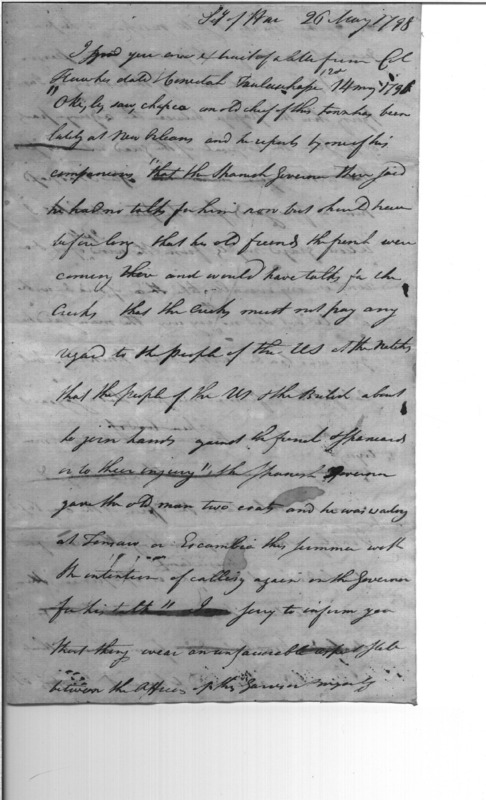 26 May 1798
I send you an extract of a letter from Col
dated 14 may 1798
"Okeley saw, chapco an old chief of this town has been
lately at New Orleans and he reports by one of his
companions "that the Spanish Governor there said
he had no talks for him now but should have
before long that his old friends the french were
coming there and would have talks for the
Creeks that the Creeks must not pay any
regard to the People of the US at the Natchez
that the People of the US & the British about
to join hands against the french & Spaniards
or to their injury" the Spanish Governor
gave the old man two coats and he was
at Tensaw or Escambia this summer with
the intention of calling again on the Governor
for his talk" I sorry to inform you
that things wear an unfavourable aspect
between the officers of this Garrison